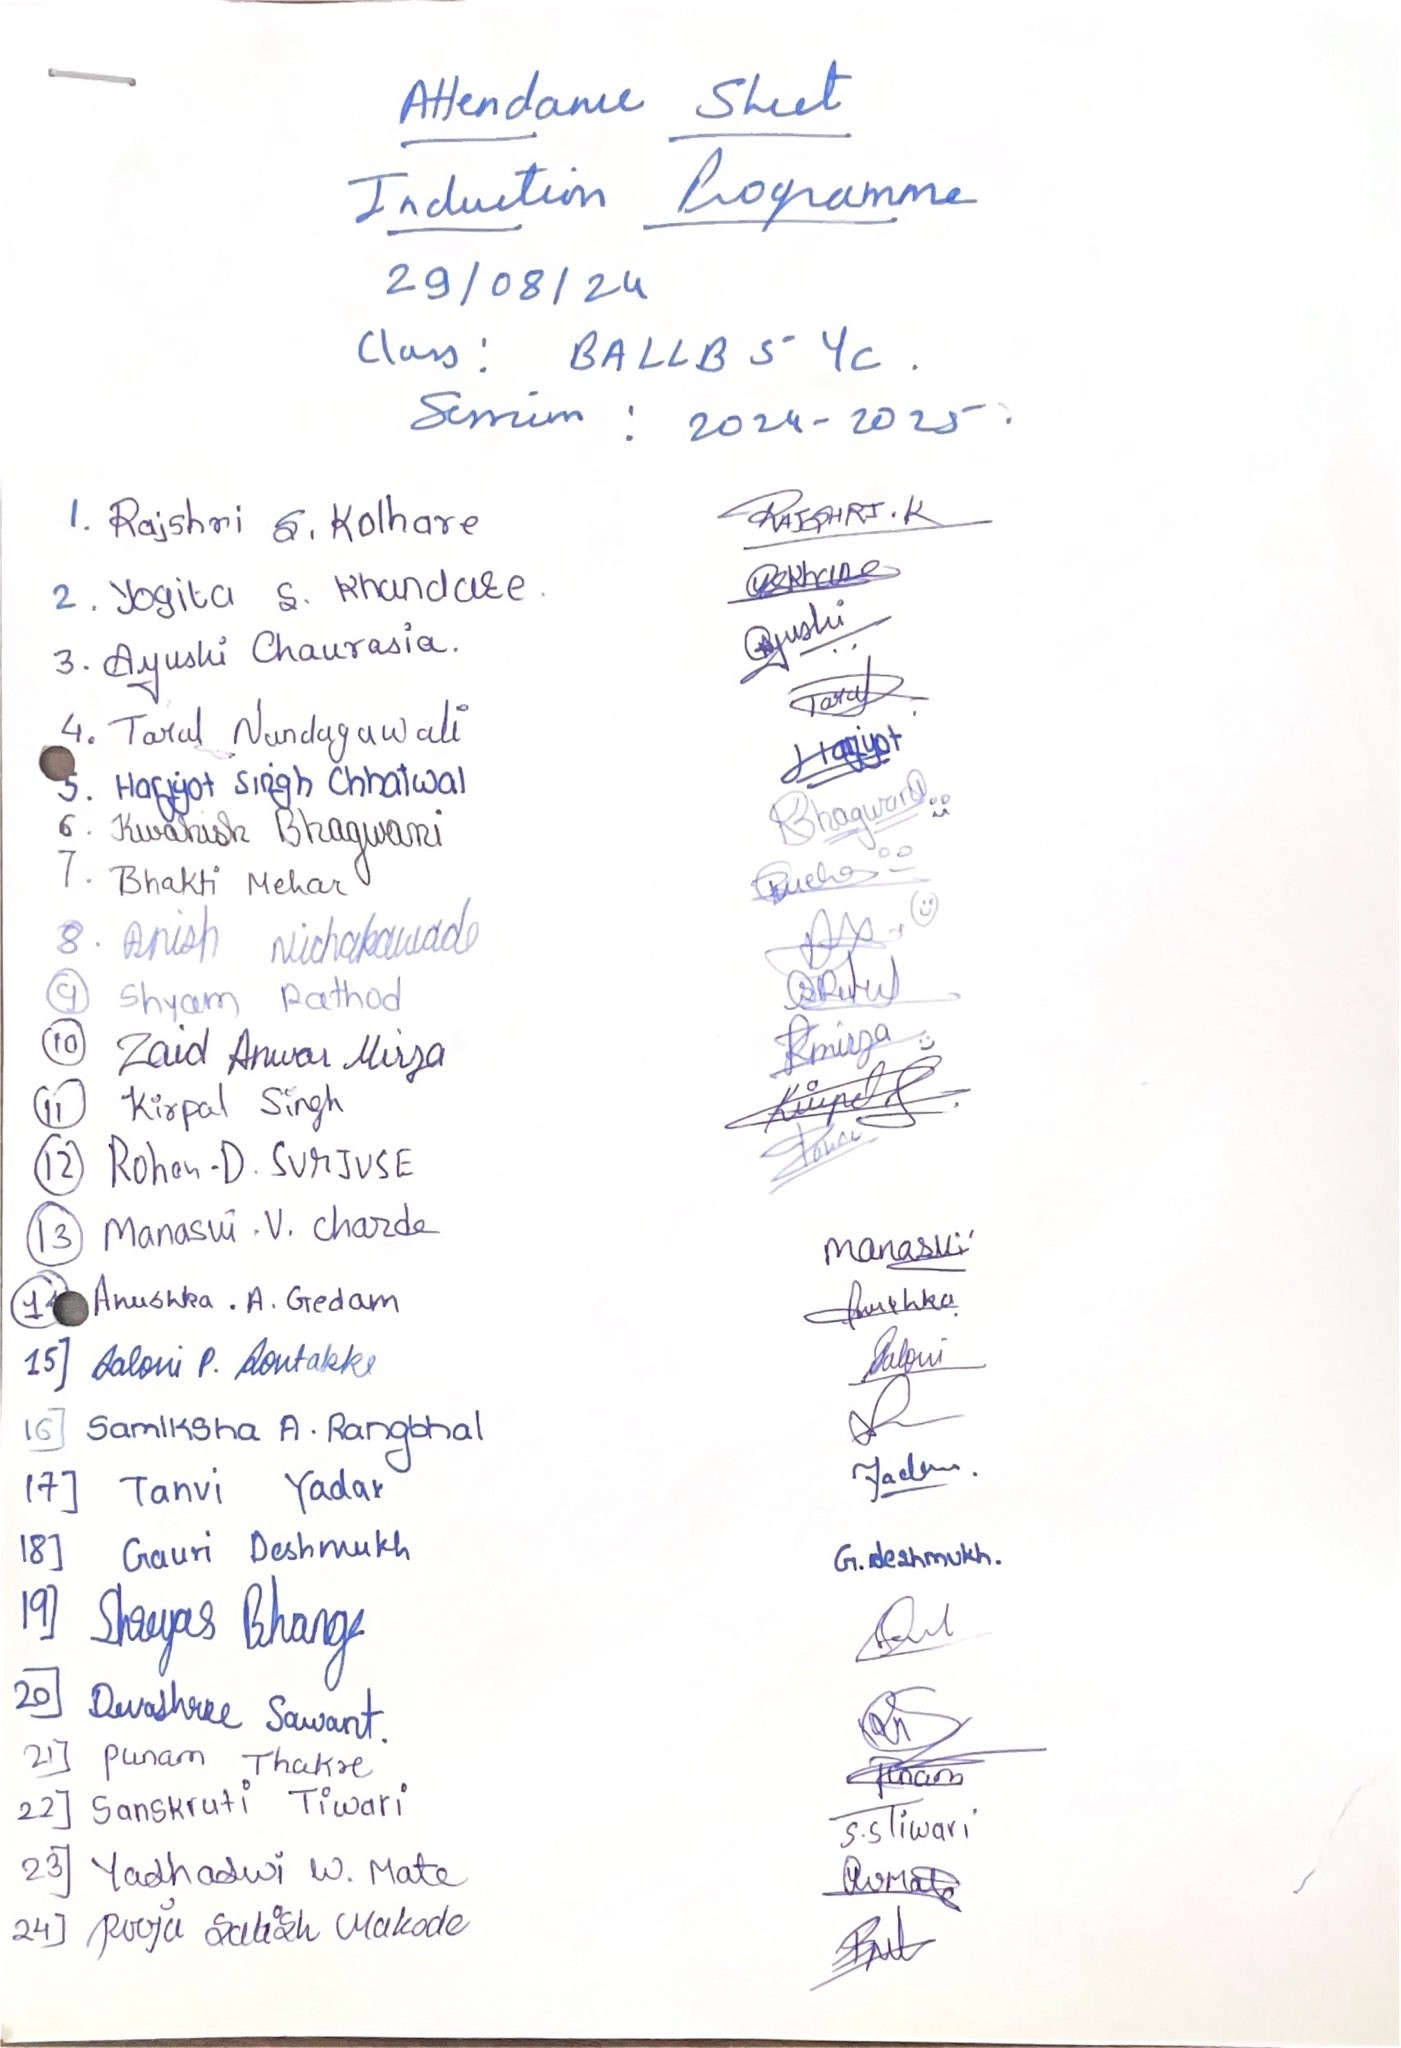 Attendance Sheet
Induction Programme
29/08/24
Class: BALLB 5 YC.
Session: 2024-2025.
1. Rajshri G. Kolhare RAJSHRI.K
2. Yogita S. Khandate.
3. Ayushi Chaurasia. Ayushi
4. Taral Nandagawali Taral
5. Harjyot Singh Chhatwal Harjyot
6. Kwahish Bhagwani Bhagwani
7. Bhakti Mehar
8. Anish Nichakawade
9 Shyam Rathod
10 Zaid Anwar Mirza Kmirza
11 Kirpal Singh Kirpal
12 Rohan.D. SURJUSE
13 Manasvi.V. Charde Manasvi
14 Anushka.A. Gedam Anushka
15] Saloni P. Sontakke Saloni
16] Samiksha A. Rangbhal
17] Tanvi Yadav Yadav.
18] Gauri Deshmukh G.deshmukh.
19] Shreyas Bhange
20] Devashree Sawant.
21] Punam Thakre Punam
22] Sanskruti Tiwari S.S Tiwari
23] Yadhadwi W. Mate
24] Pooja Satish Makode